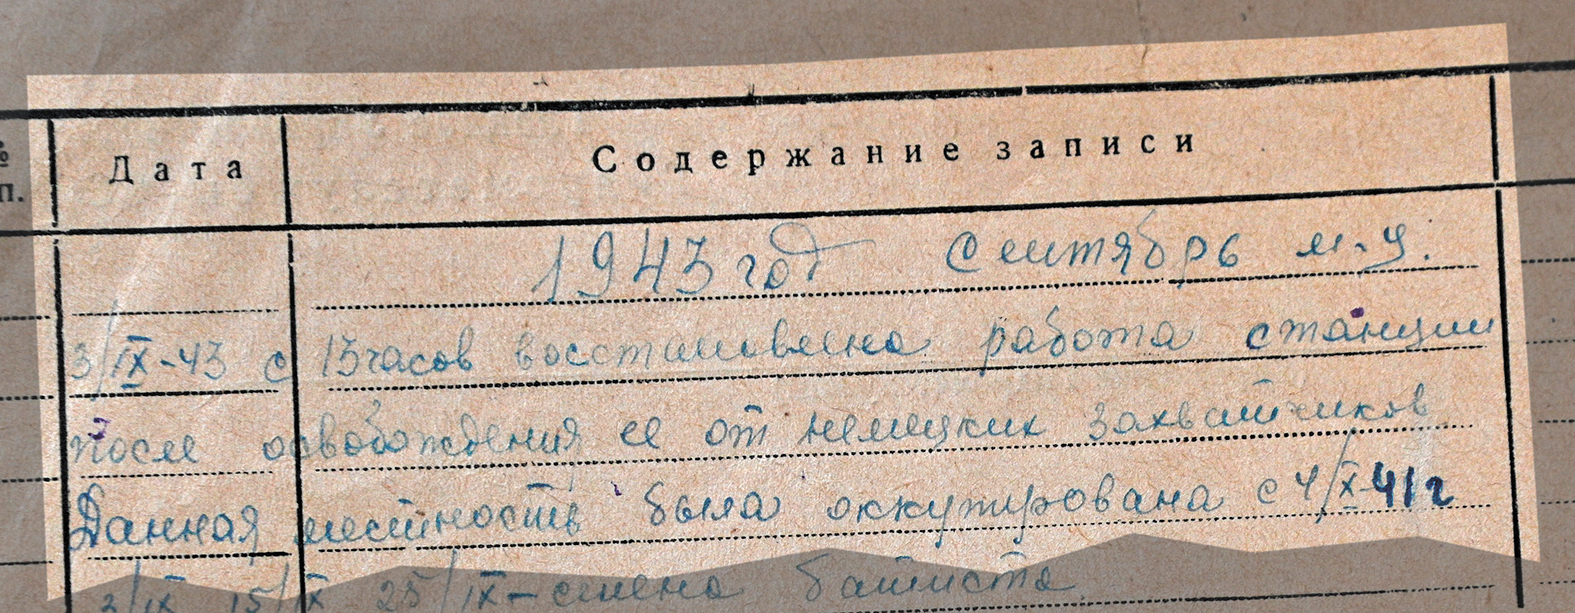 №
п.
Дата Содержание записи
1943 год Сентябрь м-ц.
3/IX-43 с 13 часов восстановлена работа станции
после освобождения ее от немецких захватчиков
Данная местность была оккупирована с 4/X-41г
3/IX 15/IX 25/IX- смена батиста